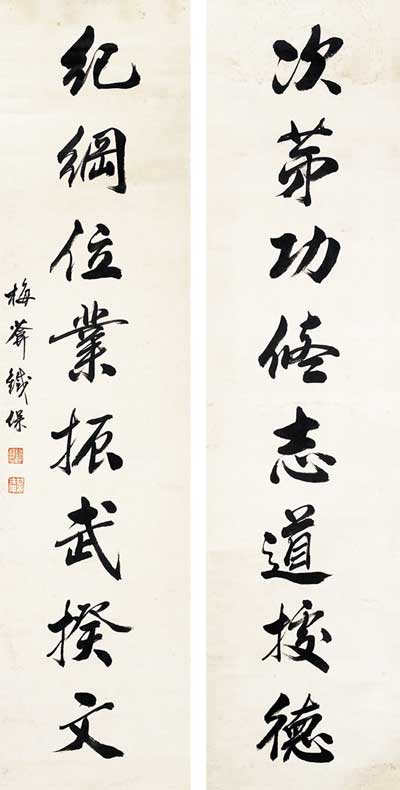 次第功脩志道據德
紀綱位業振武揆文
梅葊鐵保